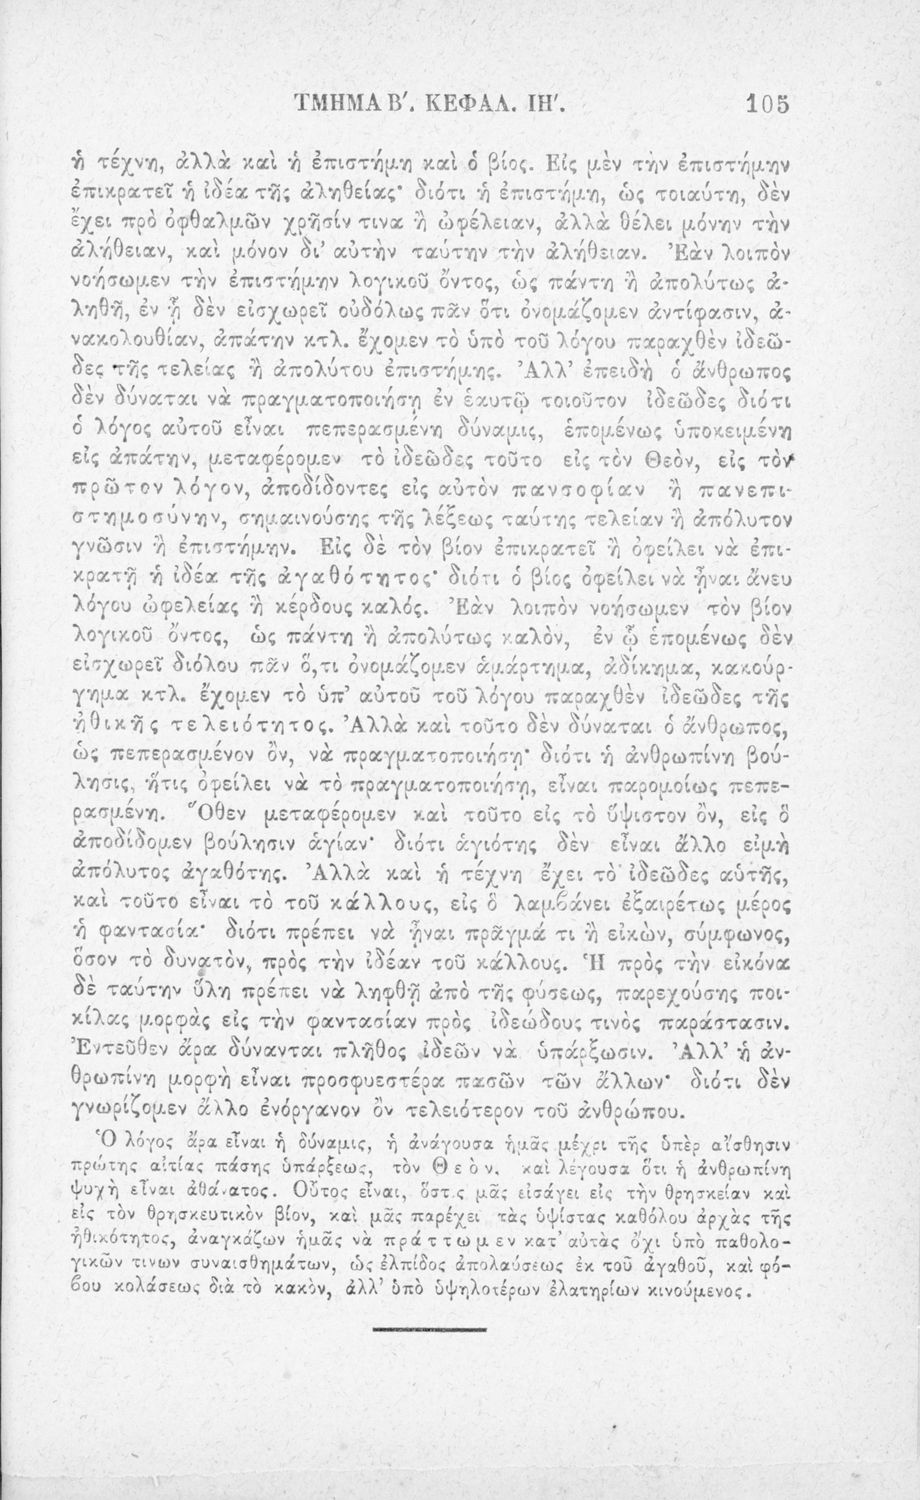 ΤΜΗΜΑ Β′. ΚΕΦΑΛ. ΙΗ′. 105
ἡ τέχνη, ἀλλὰ καὶ ἡ ἐπιστήμη καὶ ὁ βίος. Εἰς μὲν τὴν ἐπιστήμην
ἐπικρατεῖ ἡ ἰδέα τῆς ἀληθείας· διότι ἡ ἐπιστήμη, ὡς τοιαύτη, δὲν
ἔχει πρὸ ὀφθαλμῶν χρῆσίν τινα ἢ ὠφέλειαν, ἀλλὰ θέλει μόνην τὴν
ἀλήθειαν, καὶ μόνον δι' αὐτὴν ταύτην τὴν ἀλήθειαν. Ἐὰν λοιπὸν
νοήσωμεν τὴν ἐπιστήμην λογικοῦ ὄντος, ὡς πάντη ἢ ἀπολύτως ἀ-
ληθῆ, ἐν ᾗ δὲν εἰσχωρεῖ οὐδόλως πᾶν ὅτι ὀνομάζομεν ἀντίφασιν, ἀ-
νακολουθίαν, ἀπάτην κτλ. ἔχομεν τὸ ὑπὸ τοῦ λόγου παραχθὲν ἰδεῶ-
δες τῆς τελείας ἢ ἀπολύτου ἐπιστήμης. Ἀλλ' ἐπειδὴ ὁ ἄνθρωπος
δὲν δύναται νὰ πραγματοποιήσῃ ἐν ἑαυτῷ τοιοῦτον ἰδεῶδες διότι
ὁ λόγος αὐτοῦ εἶναι πεπερασμένη δύναμις, ἑπομένως ὑποκειμένη
εἰς ἀπάτην, μεταφέρομεν τὸ ἰδεῶδες τοῦτο εἰς τὸν Θεὸν, εἰς τὸν
πρῶτον λόγον, ἀποδίδοντες εἰς αὐτὸν πανσοφίαν ἢ πανεπι-
στημοσύνην, σημαινούσης τῆς λέξεως ταύτης τελείαν ἢ ἀπόλυτον
γνῶσιν ἢ ἐπιστήμην. Εἰς δὲ τὸν βίον ἐπικρατεῖ ἢ ὀφείλει νὰ ἐπι-
κρατῇ ἡ ἰδέα τῆς ἀγαθότητος· διότι ὁ βίος ὀφείλει νὰ ἦναι ἄνευ
λόγου ὠφελείας ἢ κέρδους καλός. Ἐὰν λοιπὸν νοήσωμεν τὸν βίον
λογικοῦ ὄντος, ὡς πάντη ἢ ἀπολύτως καλὸν, ἐν ᾧ ἑπομένως δὲν
εἰσχωρεῖ διόλου πᾶν ὅ,τι ὀνομάζομεν ἁμάρτημα, ἀδίκημα, κακούρ-
γημα κτλ. ἔχομεν τὸ ὑπ' αὐτοῦ τοῦ λόγου παραχθὲν ἰδεῶδες τῆς
ἠθικῆς τελειότητος. Ἀλλὰ καὶ τοῦτο δὲν δύναται ὁ ἄνθρωπος,
ὡς πεπερασμένον ὂν, νὰ πραγματοποιήσῃ· διότι ἡ ἀνθρωπίνη βού-
λησις, ἥτις ὀφείλει νὰ τὸ πραγματοποιήσῃ, εἶναι παρομοίως πεπε-
ρασμένη. Ὅθεν μεταφέρομεν καὶ τοῦτο εἰς τὸ ὕψιστον ὂν, εἰς ὃ
ἀποδίδομεν βούλησιν ἁγίαν· διότι ἁγιότης δὲν εἶναι ἄλλο εἰμὴ
ἀπόλυτος ἀγαθότης. Ἀλλὰ καὶ ἡ τέχνη ἔχει τὸ ἰδεῶδες αὑτῆς,
καὶ τοῦτο εἶναι τὸ τοῦ κάλλους, εἰς ὃ λαμβάνει ἐξαιρέτως μέρος
ἡ φαντασία· διότι πρέπει νὰ ἦναι πρᾶγμά τι ἢ εἰκὼν, σύμφωνος,
ὅσον τὸ δυνατὸν, πρὸς τὴν ἰδέαν τοῦ κάλλους. Ἡ πρὸς τὴν εἰκόνα
δὲ ταύτην ὕλη πρέπει νὰ ληφθῇ ἀπὸ τῆς φύσεως, παρεχούσης ποι-
κίλας μορφὰς εἰς τὴν φαντασίαν πρὸς ἰδεώδους τινὸς παράστασιν.
Ἐντεῦθεν ἄρα δύνανται πλῆθος ἰδεῶν νὰ ὑπάρξωσιν. Ἀλλ' ἡ ἀν-
θρωπίνη μορφὴ εἶναι προσφυεστέρα πασῶν τῶν ἄλλων· διότι δὲν
γνωρίζομεν ἄλλο ἐνόργανον ὂν τελειότερον τοῦ ἀνθρώπου.
Ὁ λόγος ἄρα εἶναι ἡ δύναμις, ἡ ἀνάγουσα ἡμᾶς μέχρι τῆς ὑπὲρ αἴσθησιν
πρώτης αἰτίας πάσης ὑπάρξεως, τὸν Θεὸν, καὶ λέγουσα ὅτι ἡ ἀνθρωπίνη
ψυχὴ εἶναι ἀθάνατος. Οὗτος εἶναι, ὅστις μᾶς εἰσάγει εἰς τὴν θρησκείαν καὶ
εἰς τὸν θρησκευτικὸν βίον, καὶ μᾶς παρέχει τὰς ὑψίστας καθόλου ἀρχὰς τῆς
ἠθικότητος, ἀναγκάζων ἡμᾶς νὰ πράττωμεν κατ' αὐτὰς ὄχι ὑπὸ παθολο-
γικῶν τινων συναισθημάτων, ὡς ἐλπίδος ἀπολαύσεως ἐκ τοῦ ἀγαθοῦ, καὶ φό-
βου κολάσεως διὰ τὸ κακὸν, ἀλλ' ὑπὸ ὑψηλοτέρων ἐλατηρίων κινούμενος.